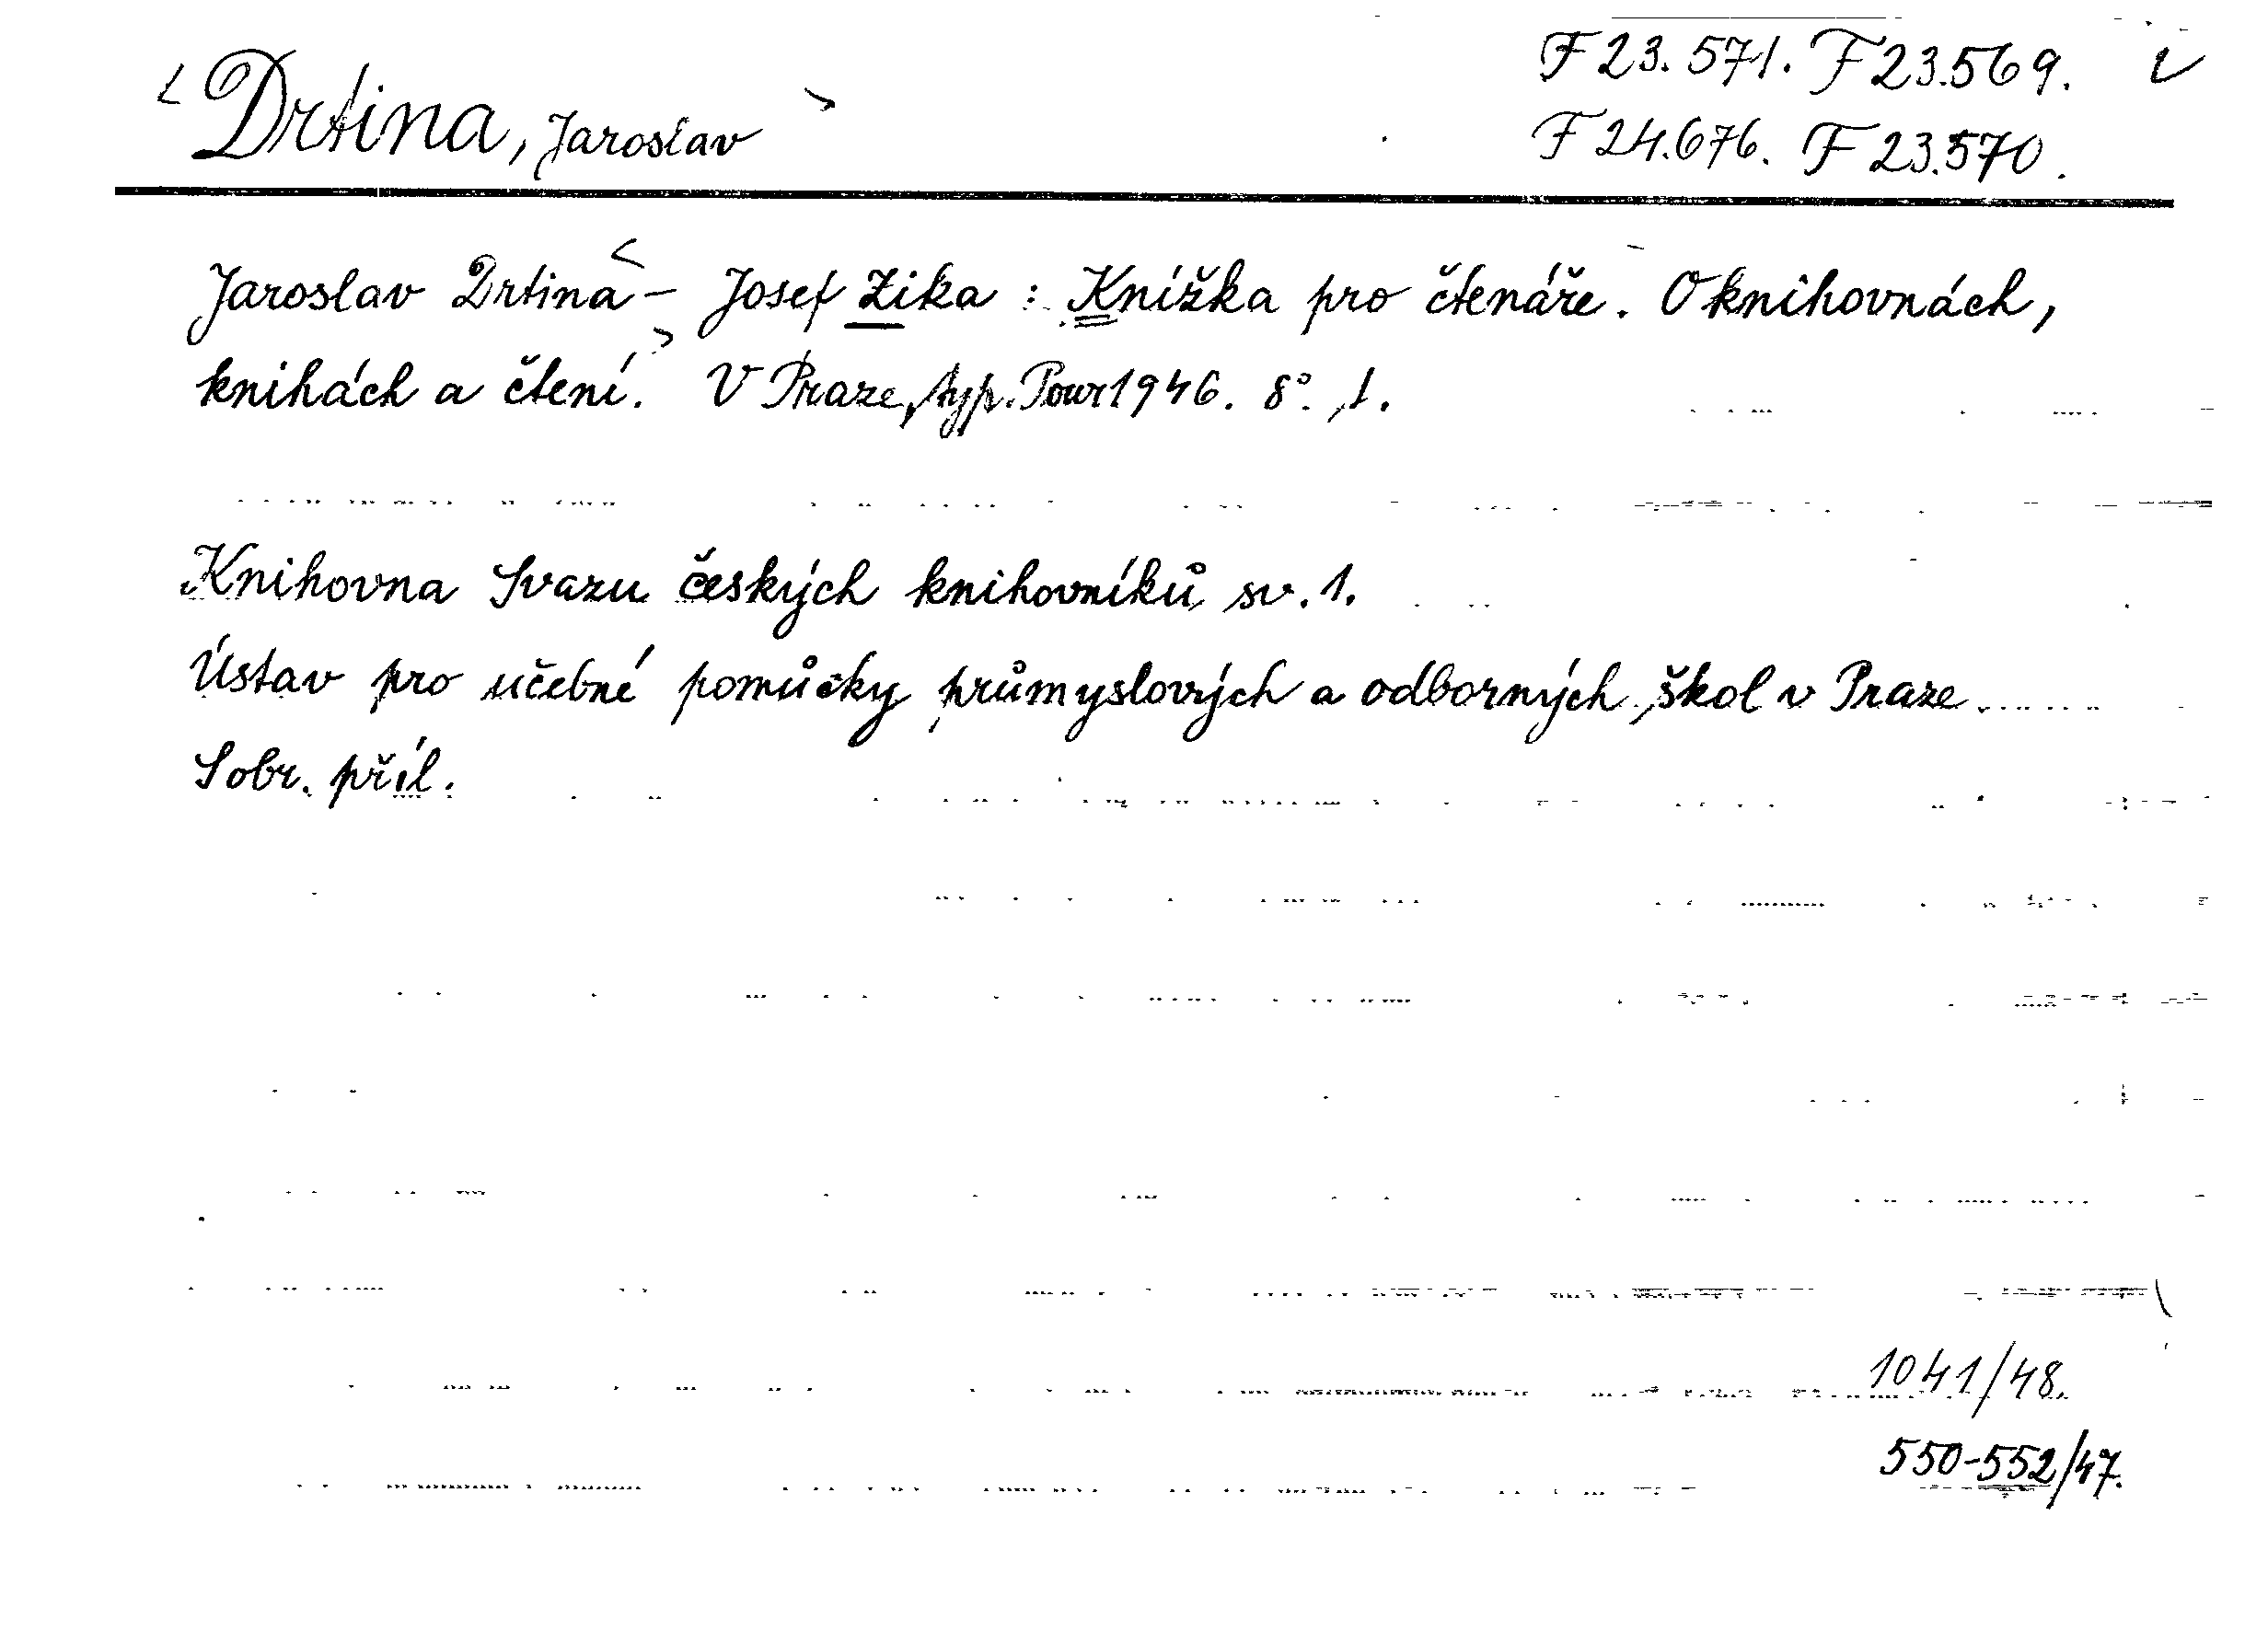 F 23.571. F 23.569.
<Drtina, Jaroslav>
F 24.676. F 23.570.
Jaroslav Drtina <- Josef Zika : Knížka pro čtenáře. O knihovnách,
knihách a čtení.> V Praze, typ. Pour 1946. 8°. 1.
Knihovna Svazu českých knihovníků sv. 1.
Ústav pro učebné pomůcky průmyslových a odborných škol v Praze
Sobr. příl.
1041/48.
550-552/47.